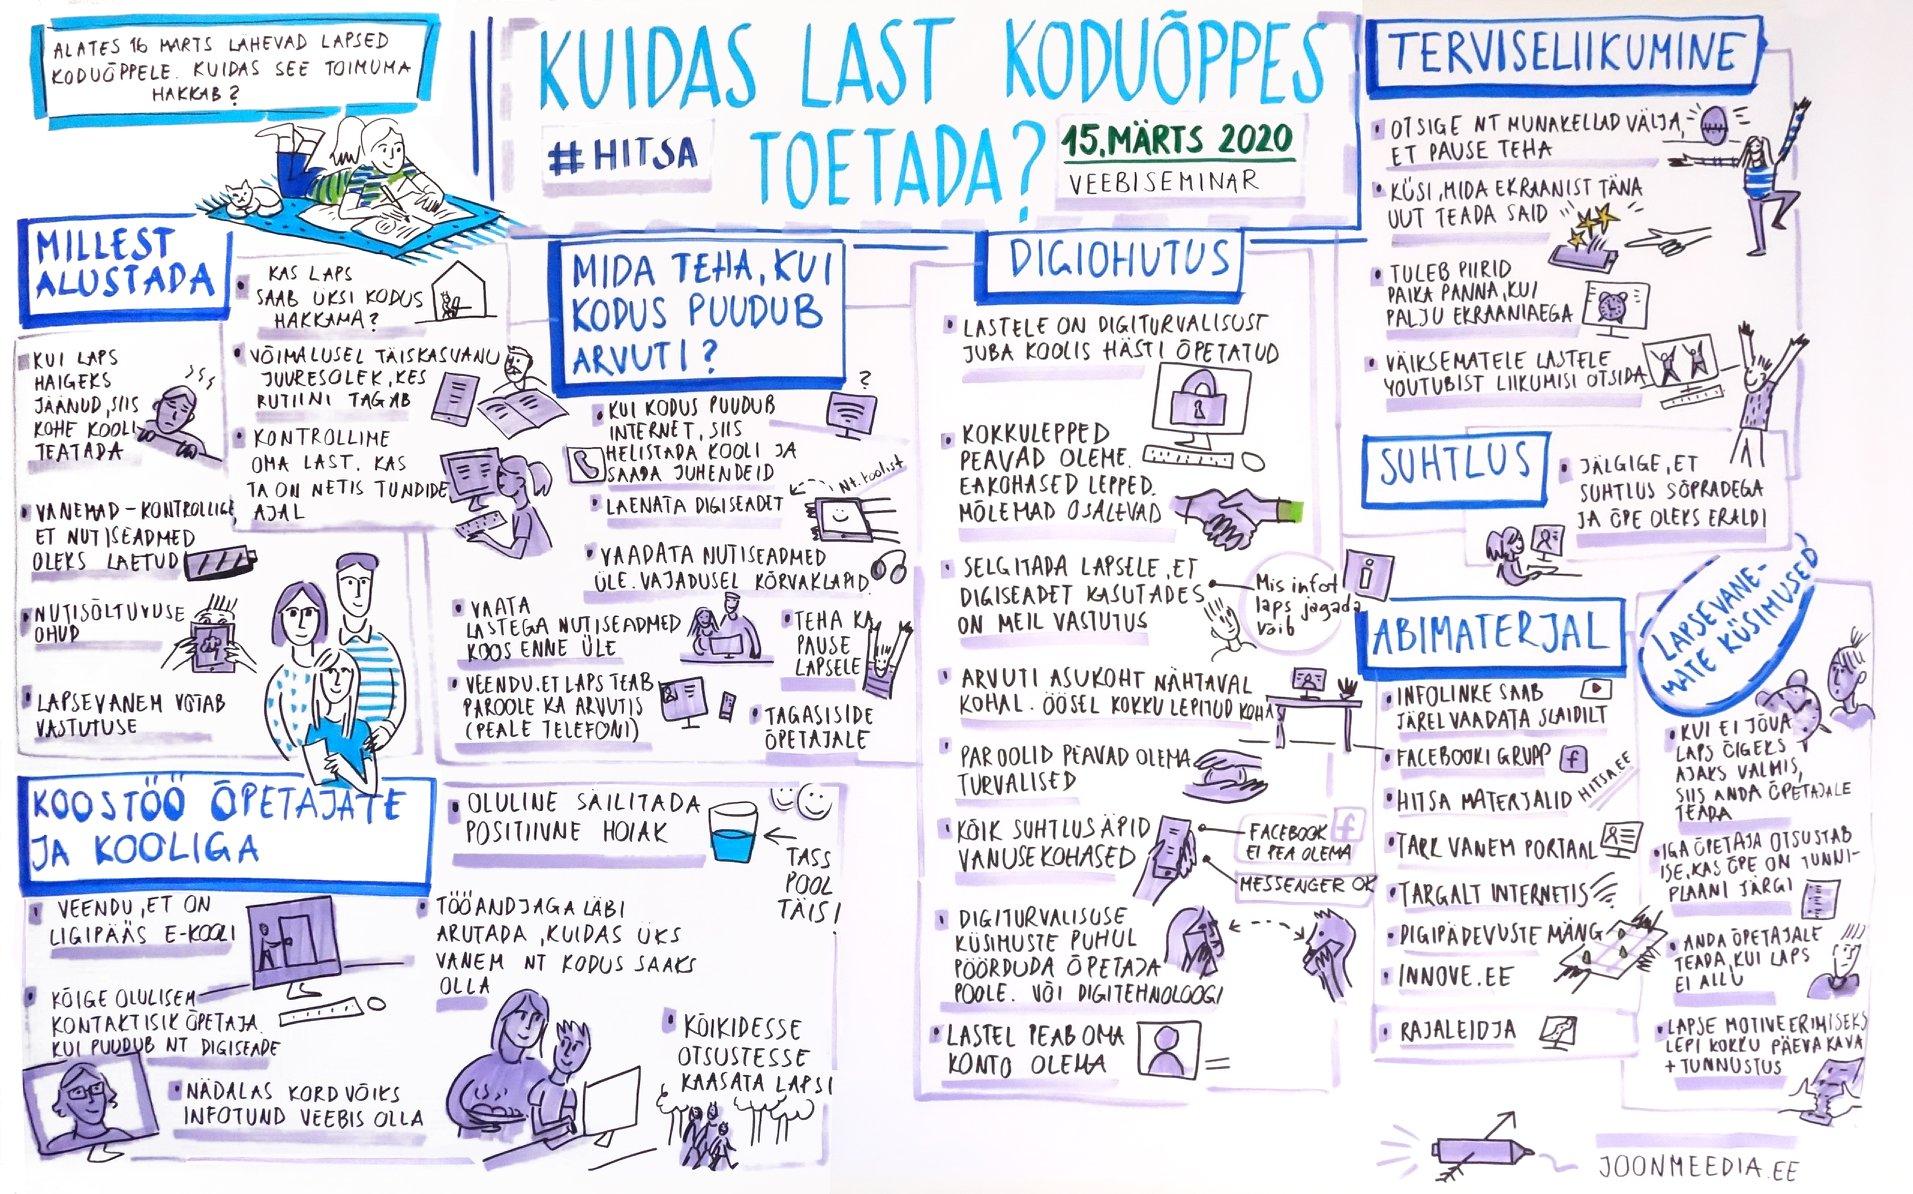 ALATES 16 MÄRTS LÄHEVAD LAPSED
KODUÕPPELE. KUIDAS SEE TOIMUMA
HAKKAB?
KUIDAS LAST KODUÕPPES
TOETADA?
#HITSA
15. MÄRTS 2020
VEEBISEMINAR
MILLEST
ALUSTADA
KUI LAPS
HAIGEKS
JÄÄNUD, SIIS
KOHE KOOLI
TEATADA
VANEMAD - KONTROLLIGE,
ET NUTISEADMED
OLEKS LAETUD
NUTISÕLTUVUSE
OHUD
LAPSEVANEM VÕTAB
VASTUTUSE
KAS LAPS
SAAB ÜKSI KODUS
HAKKAMA?
VÕIMALUSEL TÄISKASVANU
JUURESOLEK, KES
RUTIINI TAGAB
KONTROLLIME
OMA LAST, KAS
TA ON NETIS TUNDIDE
AJAL
MIDA TEHA, KUI
KODUS PUUDUB
ARVUTI?
KUI KODUS PUUDUB
INTERNET, SIIS
HELISTADA KOOLI JA
SAADA JUHENDEID
?
LAENATA DIGISEADET
NT. koolist
VAADATA NUTISEADMED
ÜLE. VAJADUSEL KÕRVAKLAPID
VAATA
LASTEGA NUTISEADMED
KOOS ENNE ÜLE
TEHA KA
PAUSE
LAPSELE
VEENDU, ET LAPS TEAB
PAROOLE KA ARVUTIS
(PEALE TELEFONI)
TAGASISIDE
ÕPETAJALE
KOOSTÖÖ ÕPETAJATE
JA KOOLIGA
VEENDU, ET ON
LIGIPÄÄS E-KOOLI
KÕIGE OLULISEM
KONTAKTISIK ÕPETAJA.
KUI PUUDUB NT DIGISEADE
NÄDALAS KORD VÕIKS
INFOTUND VEEBIS OLLA
OLULINE SÄILITADA
POSITIIVNE HOIAK
TASS
POOL
TÄIS!
TÖÖANDJAGA LÄBI
ARUTADA, KUIDAS ÜKS
VANEM NT KODUS SAAKS
OLLA
KÕIKIDESSE
OTSUSTESSE
KAASATA LAPSI
DIGIOHUTUS
LASTELE ON DIGITURVALISUST
JUBA KOOLIS HÄSTI ÕPETATUD
KOKKULEPPED
PEAVAD OLEME.
EAKOHASED LEPPED.
MÕLEMAD OSALEVAD
SELGITADA LAPSELE, ET
DIGISEADET KASUTADES
ON MEIL VASTUTUS
Mis infot
laps jagada
võib
i
ARVUTI ASUKOHT NÄHTAVAL
KOHAL. ÖÖSEL KOKKU LEPITUD KOHAS
PAROOLID PEAVAD OLEMA
TURVALISED
KÕIK SUHTLUSÄPID
VANUSEKOHASED
FACEBOOK f
EI PEA OLEMA
MESSENGER OK
DIGITURVALISUSE
KÜSIMUSTE PUHUL
PÖÖRDUDA ÕPETAJA
POOLE. VÕI DIGITEHNOLOOGI
LASTEL PEAB OMA
KONTO OLEMA
TERVISELIIKUMINE
OTSIGE NT MUNAKELLAD VÄLJA,
ET PAUSE TEHA
KÜSI, MIDA EKRAANIST TÄNA
UUT TEADA SAID
TULEB PIIRID
PAIKA PANNA, KUI
PALJU EKRAANIAEGA
VÄIKSEMATELE LASTELE
YOUTUBIST LIIKUMISI OTSIDA
SUHTLUS
JÄLGIGE, ET
SUHTLUS SÕPRADEGA
JA ÕPE OLEKS ERALDI
ABIMATERJAL
INFOLINKE SAAB
JÄRELVAADATA SLAIDILT
FACEBOOKI GRUPP f
HITSA MATERJALID HITSA.EE
TARK VANEM PORTAAL
TARGALT INTERNETIS
DIGIPÄDEVUSTE MÄNG
INNOVE.EE
RAJALEIDJA
LAPSEVANE-
MATE KÜSIMUSED
KUI EI JÕUA
LAPS ÕIGEKS
AJAKS VALMIS,
SIIS ANDA ÕPETAJALE
TEADA
IGA ÕPETAJA OTSUSTAB
ISE, KAS ÕPE ON TUNNI-
PLAANI JÄRGI
ANDA ÕPETAJALE
TEADA, KUI LAPS
EI ALLU
LAPSE MOTIVEERIMISEKS
LEPI KOKKU PÄEVAKAVA
+ TUNNUSTUS
JOONMEEDIA.EE